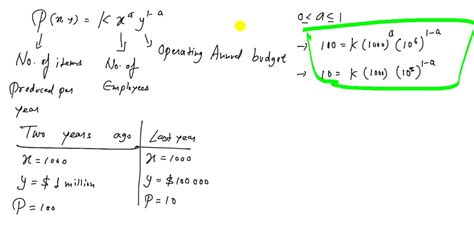 P(x y) = K x^a y^{1-a}
No. of items
Produced per
year
No. of
Employees
Operating Annual budget
0 < a ≤ 1
→ 100 = K (1000)^a (10^6)^{1-a}
→ 10 = K (1000) (10^5)^{1-a}
Two years ago | Last year
x = 1000 | x = 1000
y = $ 1 million | y = $ 100 000
P = 100 | P = 10